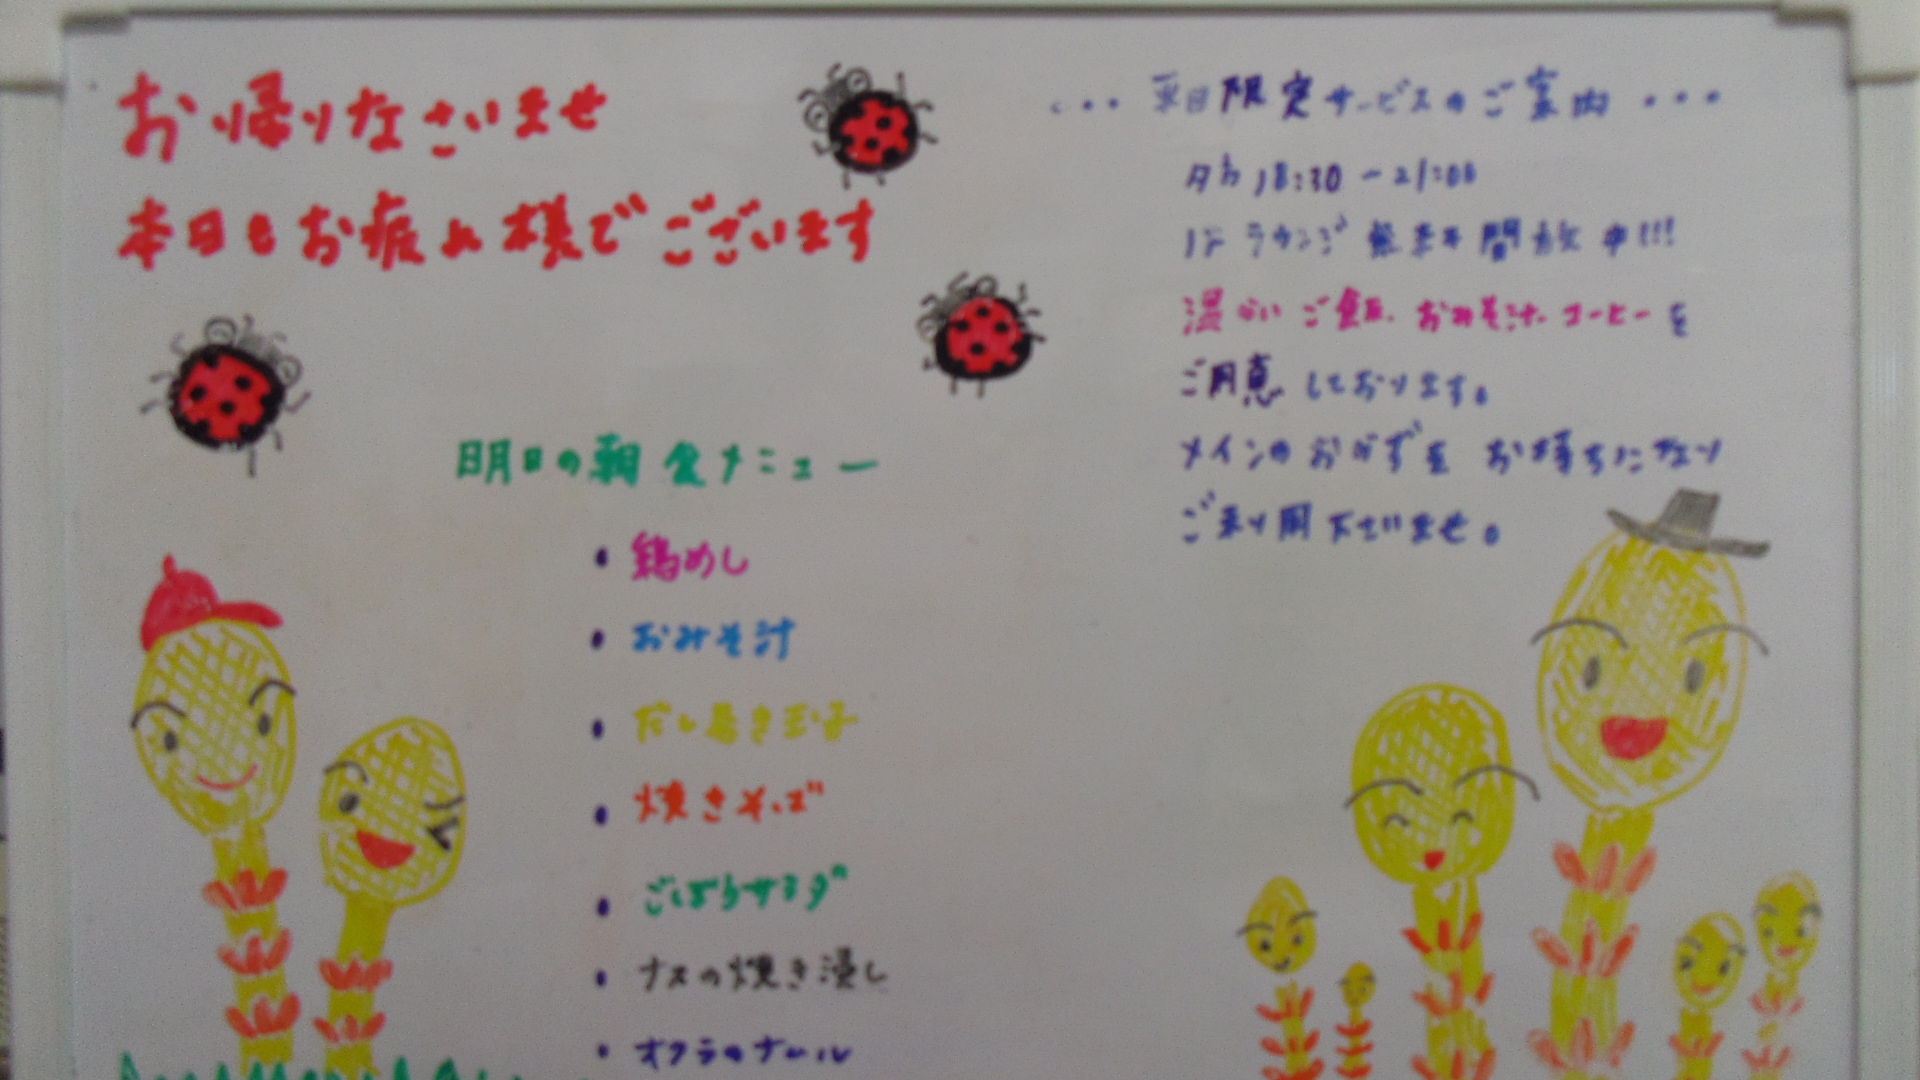 お帰りなさいませ
本日もお疲れ様でございます
明日の朝食メニュー
・鶏めし
・おみそ汁
・だし巻き玉子
・焼きそば
・ごぼうサラダ
・ナスの焼き浸し
・オクラのナムル
・・・平日限定サービスのご案内・・・
夕方18:30~21:00
1Fラウンジ無料開放中!!!
温かいご飯、おみそ汁、コーヒーを
ご用意しております。
メインのおかずをお持ちになり
ご利用下さいませ。